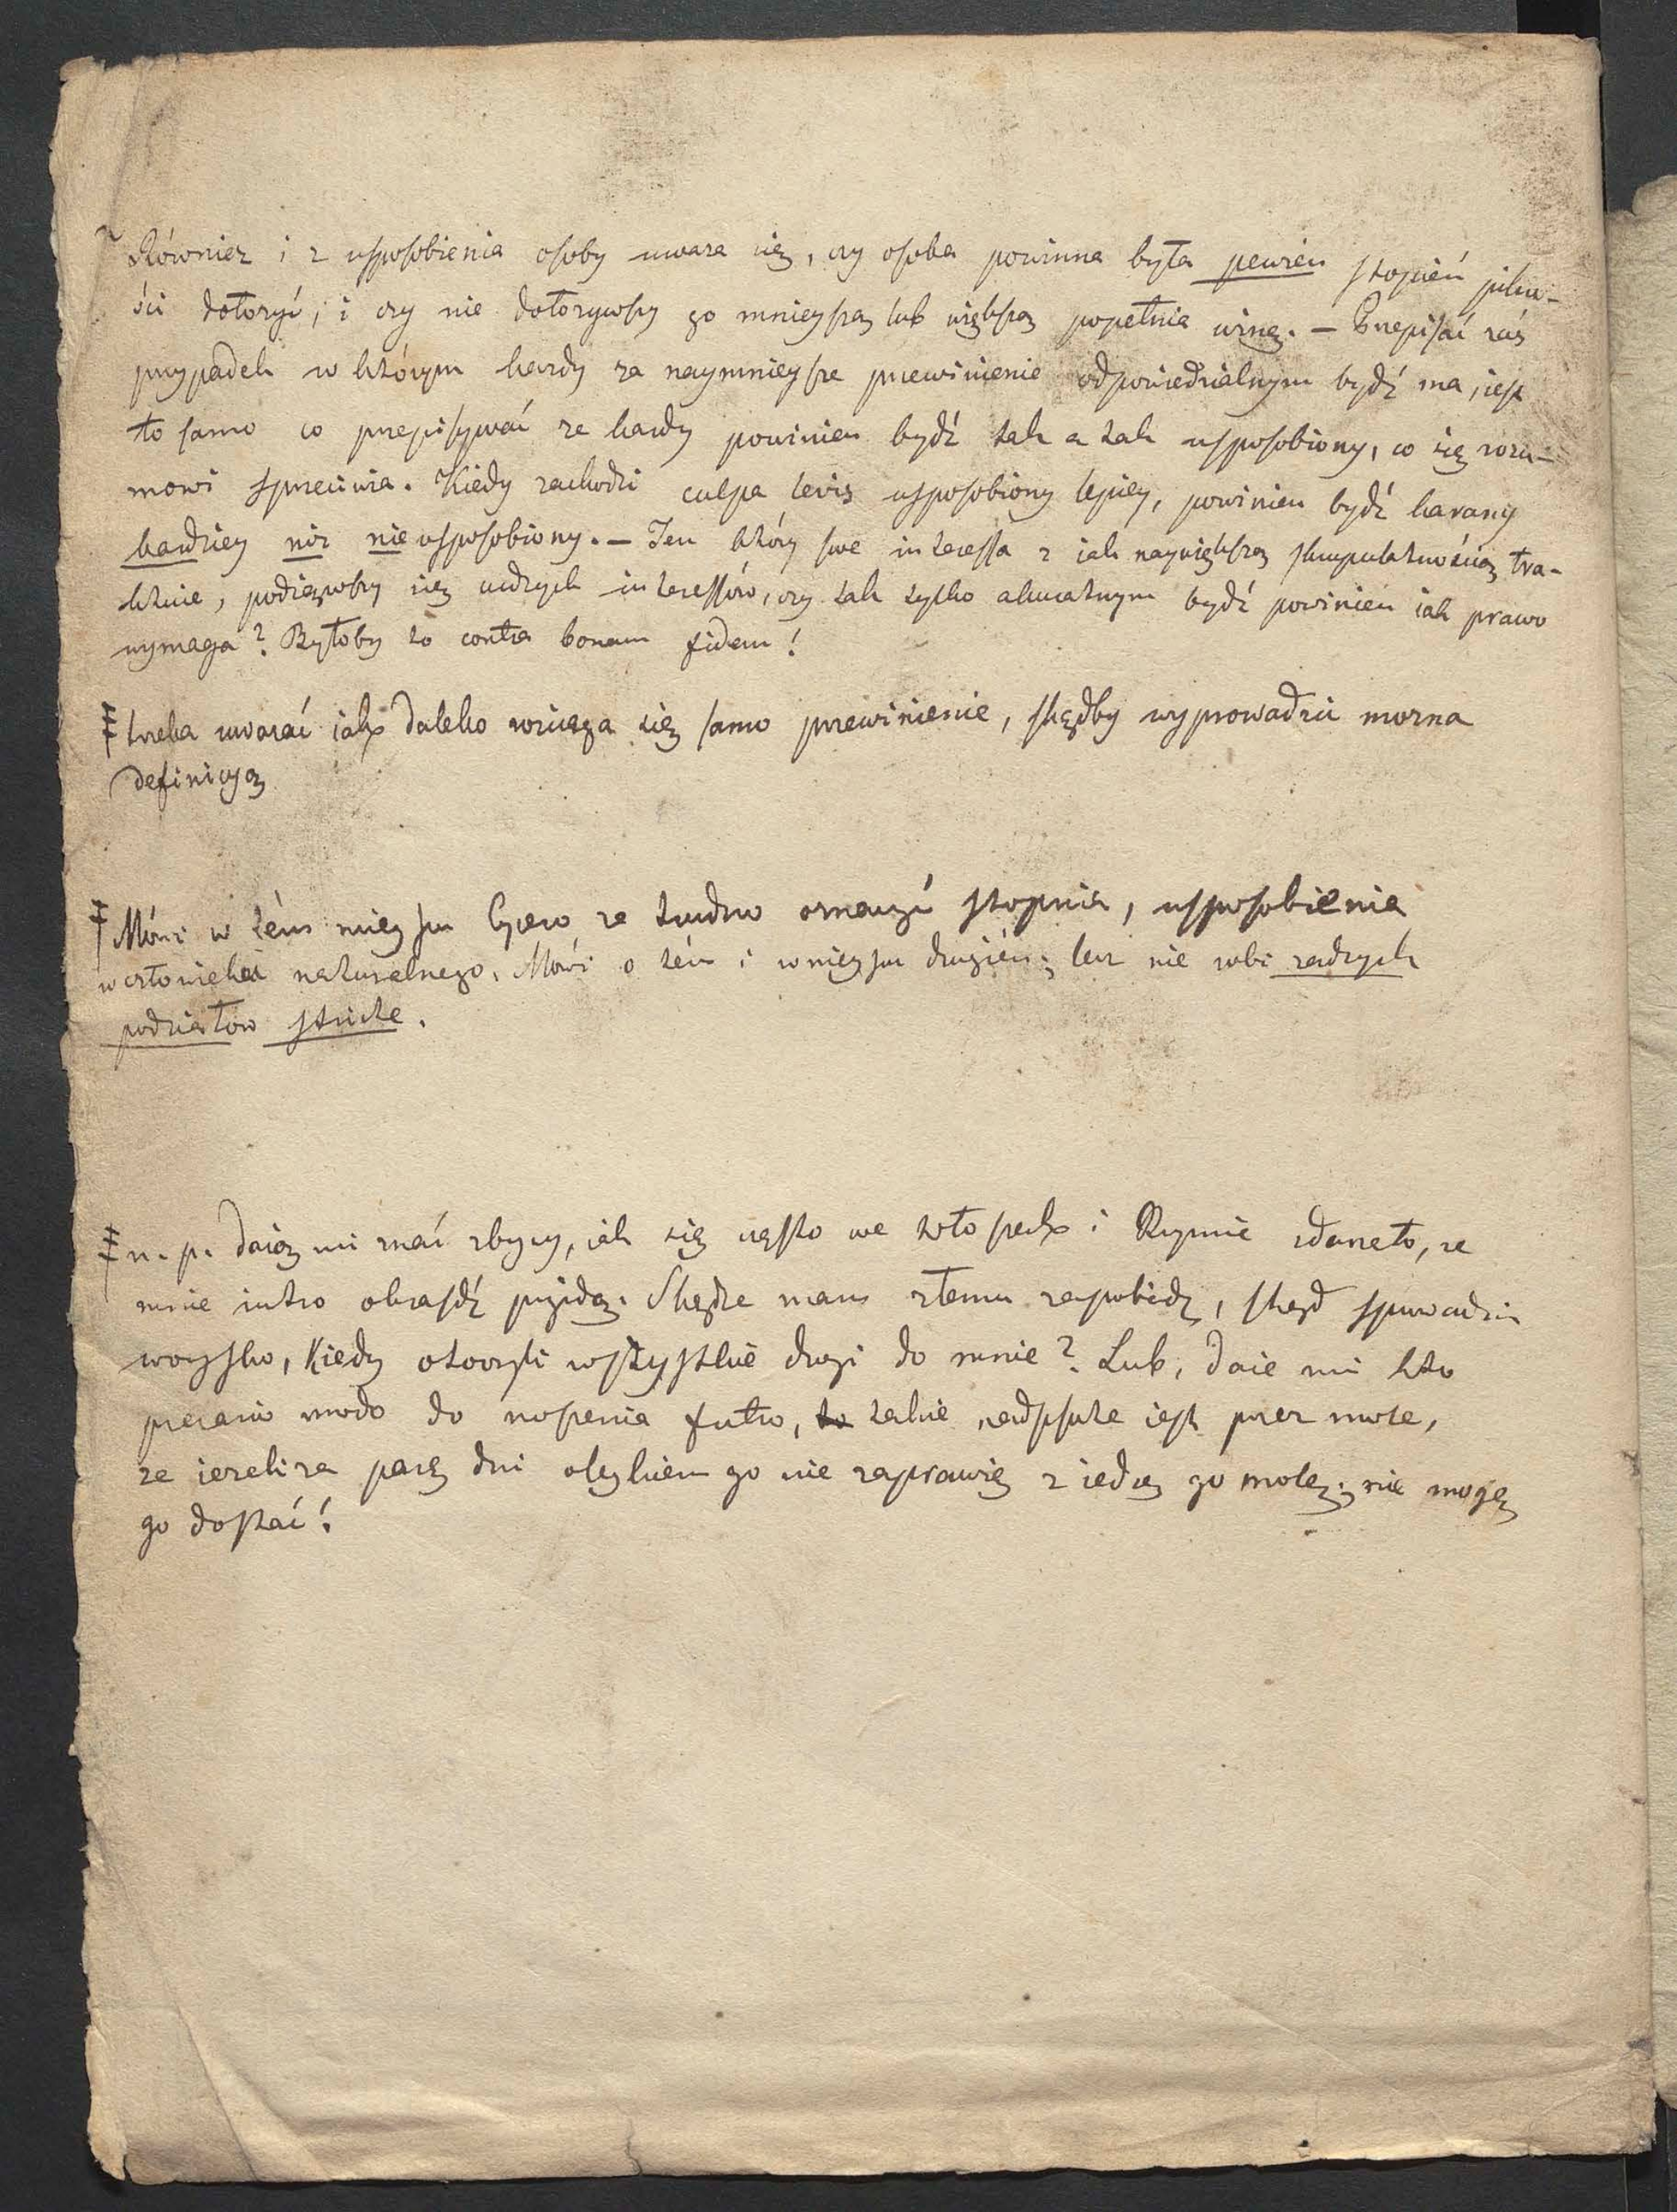 Równiez i z usposobienia osoby uwaza się, czy osoba powinna była pewien stopień pilno-
ści dołożyć, i czy nie dołożywszy go mnieyszą lub większą popełnia winę. — Przepisać zaś
przypadek w którym kazdy za naymnieysze przewinienie odpowiedzialnym bydź ma, iest
to samo co przepisywać ze kazdy powinien bydź tak a tak usposobiony, co się rozu-
mowi sprzeciwia. Kiedy zachodzi culpa levis usposobiony lepiey, powinien bydź karany
bardziey niz nie usposobiony. — Ten który swe interessa z iak naywiększą skrupulatnością tra-
ktuie, podiąwszy się cudzych interessów, czy tak tylko akuratnym bydź powinien iak prawo
wymaga? Byłoby to contra bonam fidem!
trzeba uwazać iak daleko rozciąga się samo przewinienie, skądby wyprowadzić mozna
definicyą
Mówi w tém mieyscu Cycero ze trudno oznaczyć stopnia, usposobienia
w człowieka naturalnego. Mówi o tém i w mieyscu drugiém; lecz nie robi zadnych
podziałow stricte.
n. p. Daią mi znać zbóycy, iak się często we Włoszech i Rzymie zdarzało, ze
mnie iutro okraśdź przyidą. Skądze mam złemu zapobiedz, skąd sprowadzić
woysko, kiedy otoczyli wszystkie drogi do mnie? Lub, daie mi kto
precario modo do noszenia futro, takie nadpsute iest przez mole,
ze iezeli za parę dni oleykiem go nie zaprawię ziedzą go mole; nie mogę
go dostać!